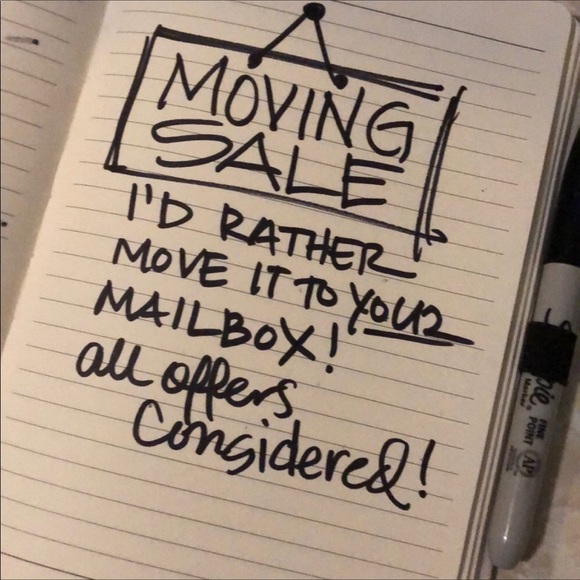 MOVING
SALE
I'D RATHER
MOVE IT TO YOUR
MAILBOX!
all offers
Considered!
FINE
POINT
AP